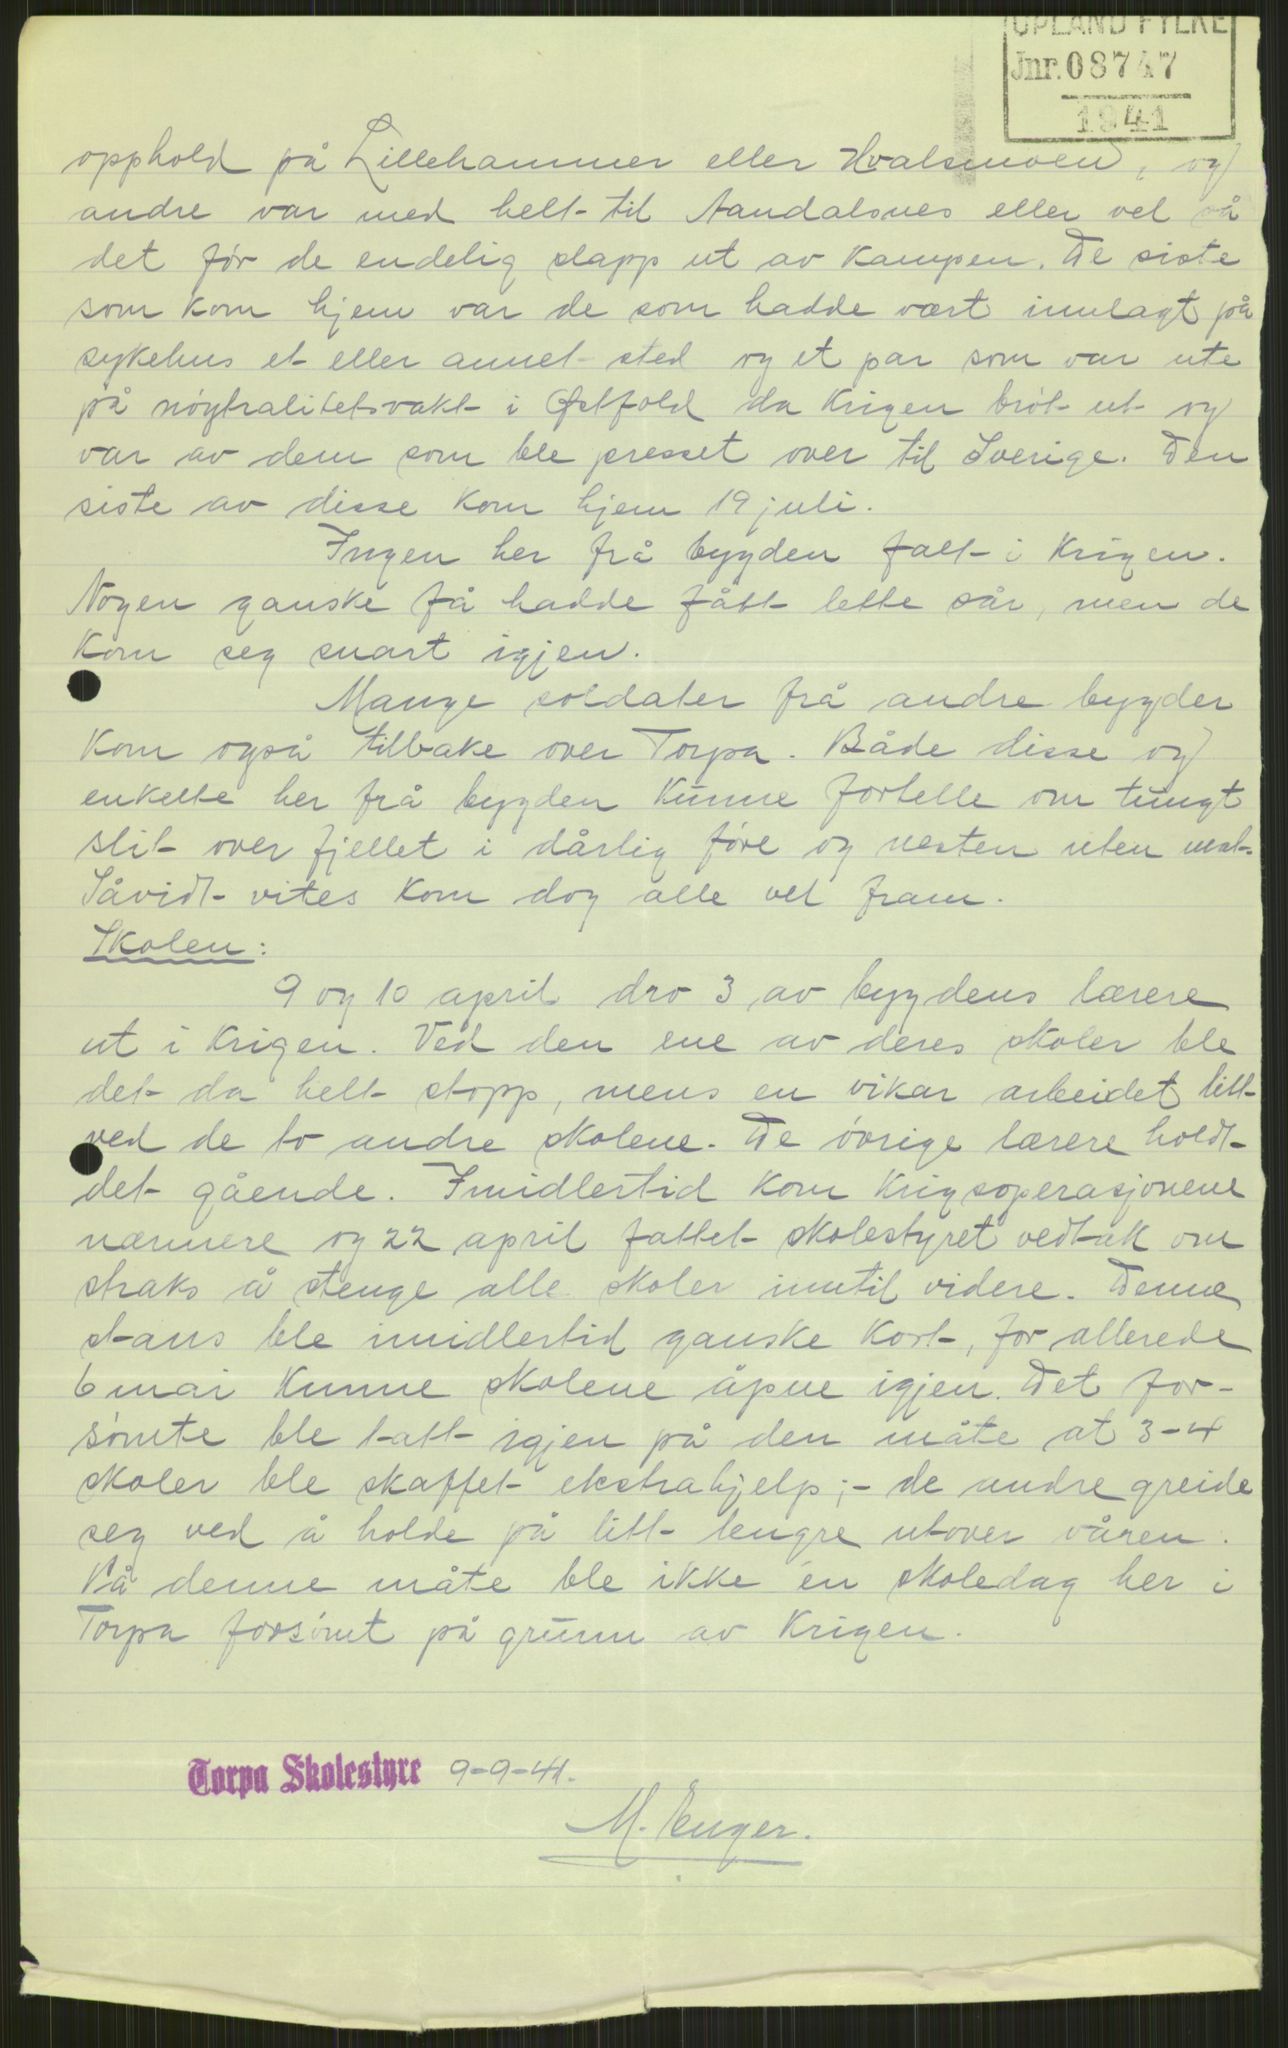 OPLAND FYLKE
Jnr. 08747
1941
opphold på Lillehammer eller Hvalsmoen, og
andre var med helt til Aandalsnes eller vel så
det før de endelig slapp ut av kampen. De siste
som kom hjem var de som hadde vært innlagt på
sykehus et eller annet sted og et par som var ute
på nøytralitetsvakt i Østfold da krigen brøt ut og
var av dem som ble presset over til Sverige. Den
siste av disse kom hjem 19 juli.
Ingen her frå bygden falt i krigen.
Nogen ganske få hadde fått lette sår, men de
kom seg snart igjen.
Mange soldater frå andre bygder
kom også tilbake over Torpa. Både disse og
enkelte her frå bygden kunne fortelle om tungt
slit over fjellet i dårlig føre og nesten uten mat.
Såvidt vites kom dog alle vel fram.
Skolen:
9 og 10 april dro 3 av bygdens lærere
ut i krigen. Ved den ene av deres skoler ble
det da helt stopp, mens en vikar arbeidet litt
ved de to andre skolene. De øvrige lærere holdt
det gående. Imidlertid kom krigsoperasjonene
nærmere og 22 april fattet skolestyret vedtak om
straks å stenge alle skoler inntil videre. Denne
stans ble imidlertid ganske kort, for allerede
6 mai kunne skolene åpne igjen. Det for-
sømte ble tatt igjen på den måte at 3-4
skoler ble skaffet ekstrahjelp; - de andre greide
seg ved å holde på litt lengre utover våren.
På denne måte ble ikke én skoledag her i
Torpa forsømt på grunn av krigen.
Torpa Skolestyre 9-9-41.
M. Enger.